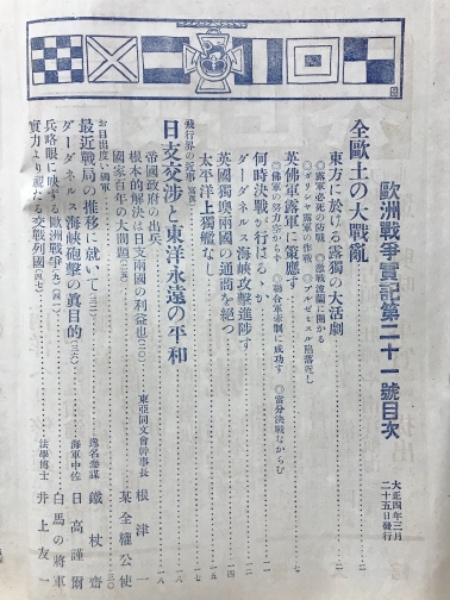 歐洲戰爭實記第二十一號目次
大正四年三月
二十五日發行
全歐土の大戰亂
東方に於ける露獨の大活劇
◎露軍必死の防戰
◎ガリシヤ露軍の作戰
英佛軍露軍に策應す
◎佛軍の努力空からず
◎聯合軍牽制に成功す
◎當分決戰なからむ
何時決戰が行はるゝか
ダーダネルス海峽攻擊進陟す
英國獨墺兩國の通商を絕つ
太平洋上獨艦なし
日支交涉と東洋永遠の平和
帝國政府の出兵
根本的解決は日支兩國の利益也
東亞同文會幹事長 根津一
國家百年の大問題
某全權公使
お目出度い獨軍
最近戰局の推移に就いて
鐵杖齋
ダーダネルス海峽砲擊の眞目的
海軍中佐 日高謹爾
兵略眼に映ずる歐洲戰爭
白馬の將軍
實力より觀たる交戰列國
法學博士 井上友一